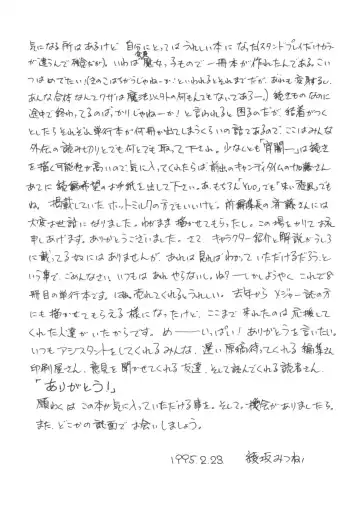 気になる所はあるけど 自分にとってはうれしい本になった(スタンドプレイだけカラー
が違うんで確信がない)。いわば変身魔女っ子もので一冊本が作れたんであるこい
つはめでたい!(きのこはちがうじゃねーか!といわれるとそれまでだが、あれも変身するし、
あんな合体なんてワザは魔法以外の何もんでもないであろー)。続きものなのに
途中で終わってるのばっかりじゃねーか!と言われると 困るのだが、結着がつく
としたらそれぞれ単行本が何冊か出てしまうくらいの話であるので、ここはみんな
外伝の読み切りとでも何とでも取って下せぇ。少なくとも「宵闇ー」は続き
を描く可能性が高いので気に入ってくれたらば、前出のキャンディタイムの加藤さん
あてに 続編希望のお手紙を出して下さい。あ、もちろん「YUO」でも「朱い旋風」でも
ね。掲載していたホットミルクの方でもいいけど。前編集長の斉藤さんには
大変お世話になりました。わがまま描かせてもらったし。この場をかりてお礼
申しあげます。ありがとうございました。さて キャラクター紹介と解説がうしろ
に載ってるわけにはありませんが、あれは見ればわかっていただけるだろうと
いう事で、ごめんなさい。いつもはあれやらないし。ね?ーしかしようやく、これで8
冊目の単行本です。にぎやかに売れてくれるとうれしい。去年から メジャー誌の方
にも描かせてもらえる様になったけど、ここまで来れたのは応援して
くれた人達がいたからです。めーーいっぱい!ありがとうを言いたい。
いつもアシスタントをしてくれるみんな、遅い原稿待ってくれる編集さん
印刷屋さん、意見を聞かせてくれる友達、そして読んでくれる読者さん、
「ありがとう!」
願わくは この本が気に入っていただける事を。そして、機会がありましたら。
また、どこかの誌面で お会いしましょう。
1995.2.23 綾坂みつね